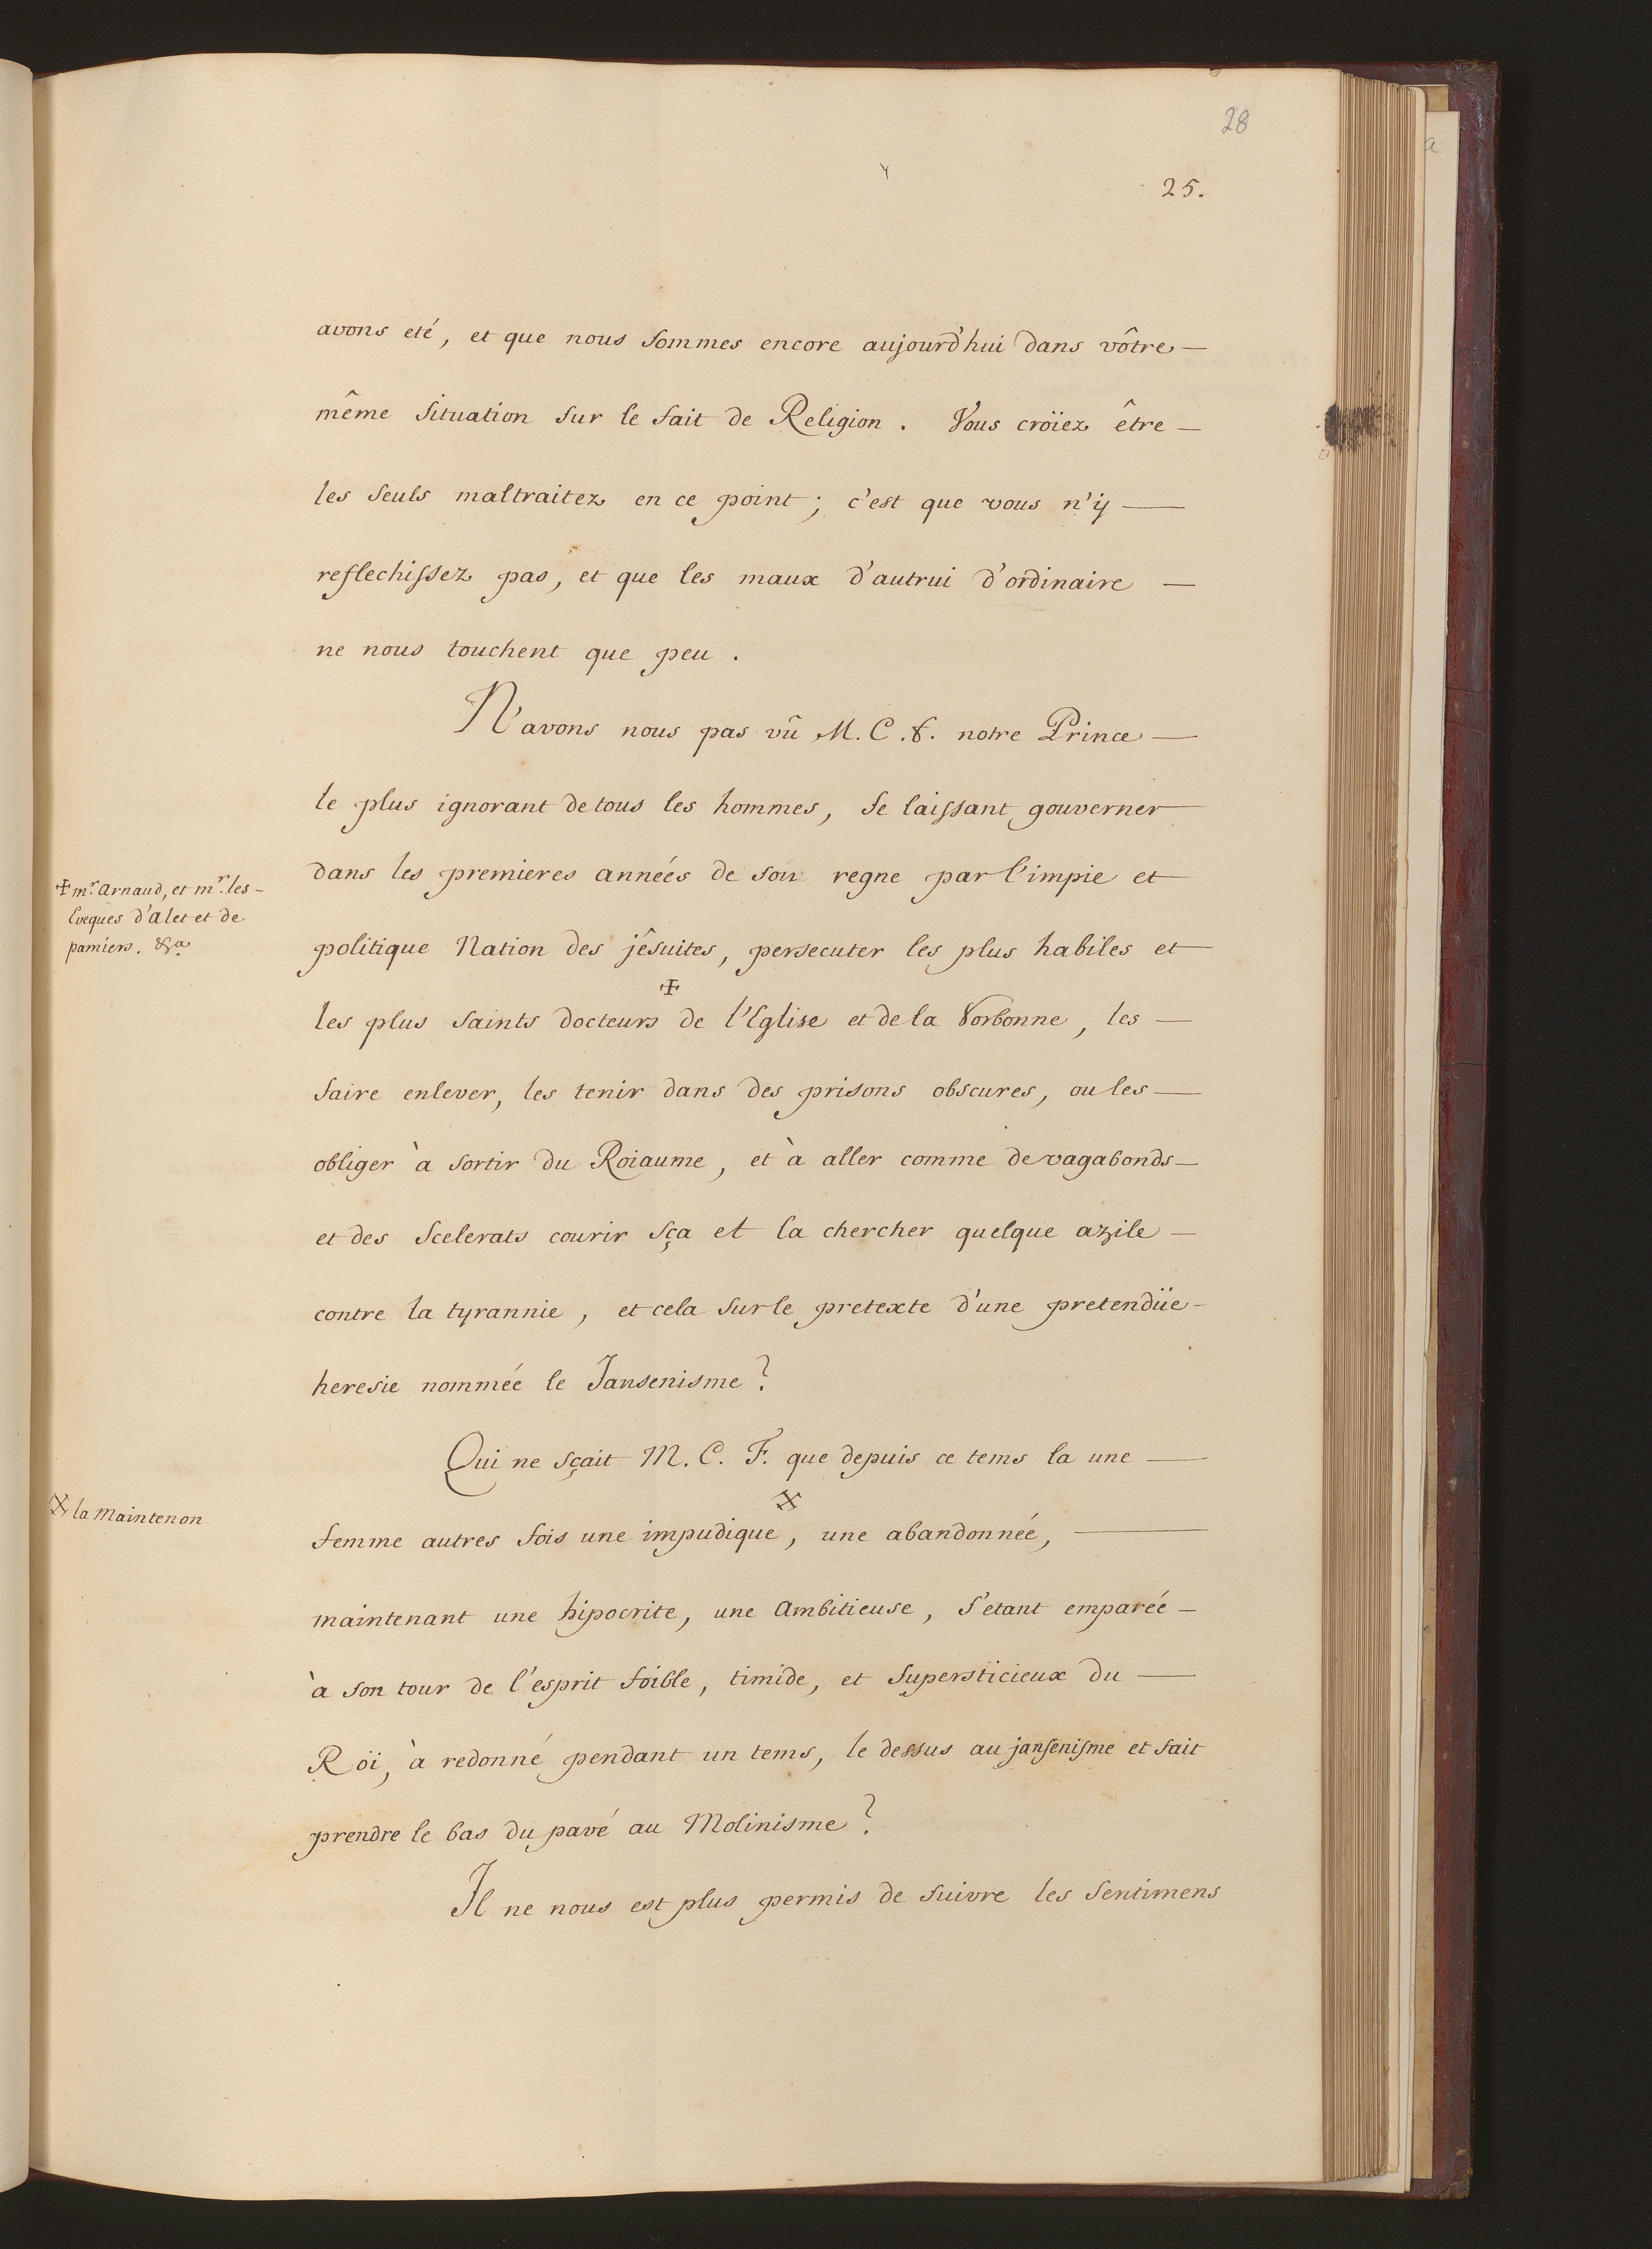 28
25.
avons eté, et que nous sommes encore aujourd'hui dans vôtre —
même situation sur le fait de Religion. Vous croïez être —
les seuls maltraitez en ce point; c'est que vous n'ÿ —
reflechissez pas, et que les maux d'autrui d'ordinaire —
ne nous touchent que peu.
N'avons nous pas vû M. C. f. notre Prince —
le plus ignorant de tous les hommes, se laissant gouverner
dans les premieres années de son regne par l'impie et
✠ mr. Arnaud, et mr. les —
Eveques d'alet et de
pamiers. &a.
politique Nation des jêsuites, persecuter les plus habiles et
les plus saints docteurs ✠ de l'Eglise et de la Sorbonne, les —
faire enlever, les tenir dans des prisons obscures, ou les —
obliger à sortir du Roiaume, et à aller comme de vagabonds —
et des scelerats courir sça et la chercher quelque azile —
contre la tyrannie, et cela sur le pretexte d'une pretendüe —
heresie nommée le Jansenisme?
Qui ne sçait M. C. F. que depuis ce tems la une —
☓ la Maintenon
femme autres fois une impudique ☓, une abandonnée, —
maintenant une hipocrite, une ambitieuse, s'etant emparée —
à son tour de l'esprit foible, timide, et supersticieux du —
Roï, à redonné pendant un tems, le dessus au jansenisme et fait
prendre le bas du pavé au Molinisme?
Il ne nous est plus permis de suivre les sentimens